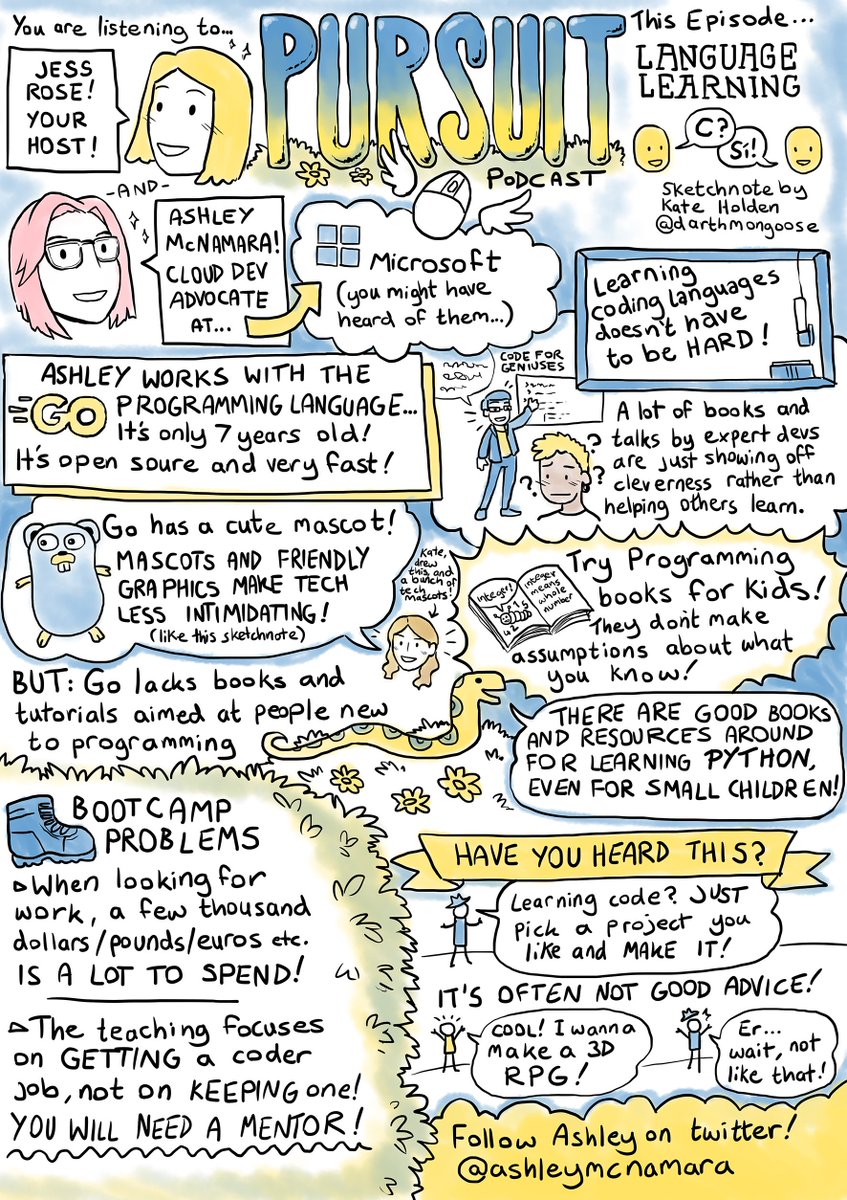 You are listening to...
PURSUIT
PODCAST
This Episode...
LANGUAGE
LEARNING
C?
Si!
Sketchnote by
Kate Holden
@darthmongoose
JESS
ROSE!
YOUR
HOST!
-AND-
ASHLEY
McNAMARA!
CLOUD DEV
ADVOCATE
AT...
Microsoft
(you might have
heard of them...)
Learning
coding languages
doesn't have
to be HARD!
ASHLEY WORKS WITH THE
GO PROGRAMMING LANGUAGE...
It's only 7 years old!
It's open soure and very fast!
CODE FOR
GENIUSES
A lot of books and
talks by expert devs
are just showing off
cleverness rather than
helping others learn.
? ? ? ?
Go has a cute mascot!
MASCOTS AND FRIENDLY
GRAPHICS MAKE TECH
LESS INTIMIDATING!
(like this sketchnote)
Kate,
drew
this, and
a bunch of
tech
mascots!
Try Programming
books for Kids!
They don't make
assumptions about what
you know!
integer!
integer
means
whole
number
BUT: Go lacks books and
tutorials aimed at people new
to programming
THERE ARE GOOD BOOKS
AND RESOURCES AROUND
FOR LEARNING PYTHON,
EVEN FOR SMALL CHILDREN!
BOOTCAMP
PROBLEMS
When looking for
work, a few thousand
dollars/pounds/euros etc.
IS A LOT TO SPEND!
The teaching focuses
on GETTING a coder
job, not on KEEPING one!
YOU WILL NEED A MENTOR!
HAVE YOU HEARD THIS?
Learning code? JUST
pick a project you
like and MAKE IT!
IT'S OFTEN NOT GOOD ADVICE!
COOL! I wanna
make a 3D
RPG!
Er...
wait, not
like that!
Follow Ashley on twitter!
@ashleymcnamara